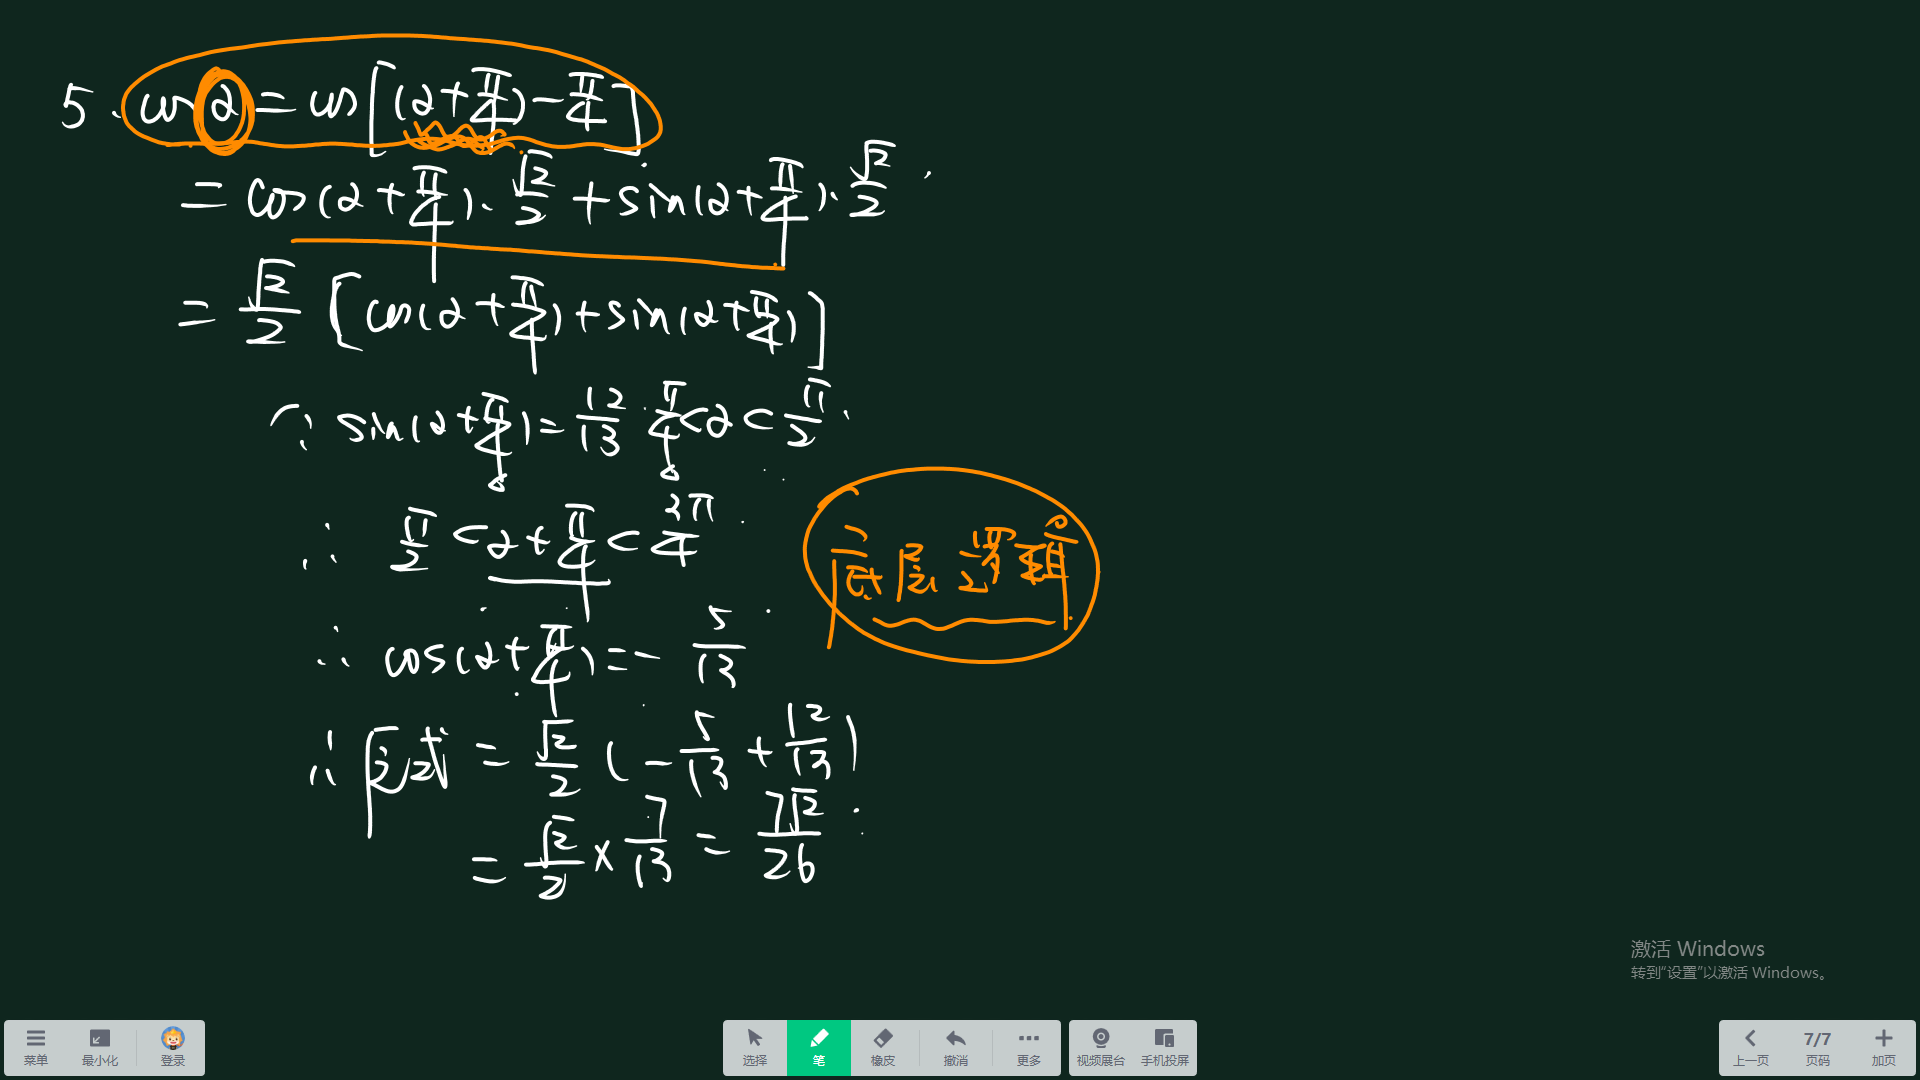 5. cosα = cos[(α+π/4)-π/4]
= cos(α+π/4)·√2/2 + sin(α+π/4)·√2/2
= √2/2 [cos(α+π/4)+sin(α+π/4)]
∵ sin(α+π/4)=12/13 π/4<α<π/2
∴ π/2<α+π/4<3π/4
底层逻辑
∴ cos(α+π/4)=-5/13
∴ 原式 = √2/2 (-5/13+12/13)
= √2/2 × 7/13 = 7√2/26
激活 Windows
转到“设置”以激活 Windows。
菜单 最小化 登录 选择 笔 橡皮 撤消 更多 视频展台 手机投屏 上一页 7/7 页码 加页